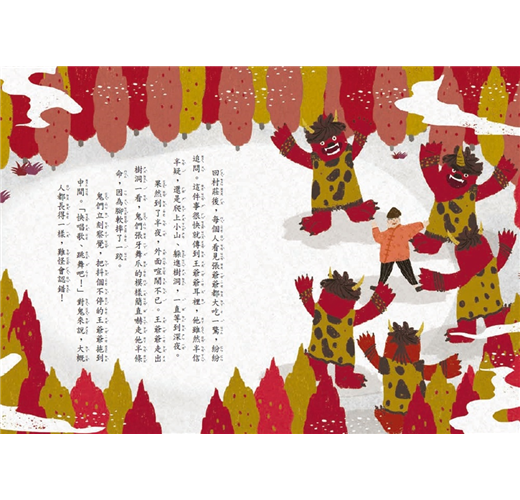 回村莊後，每個人看見張爺爺都大吃一驚，紛紛
追問。這件事很快就傳到王爺爺耳裡，他雖然半信
半疑，還是爬上小山、躲進樹洞，一直等到深夜。
果然到了半夜，外面喧鬧不已。王爺爺走出
樹洞一看，鬼們張牙舞爪的模樣簡直嚇走他半條
命，因為腳軟摔了一跤。
鬼們立刻察覺，把抖個不停的王爺爺拖到
中間。「快唱歌、跳舞吧！」對鬼來說，大概
人都長得一樣，難怪會認錯！